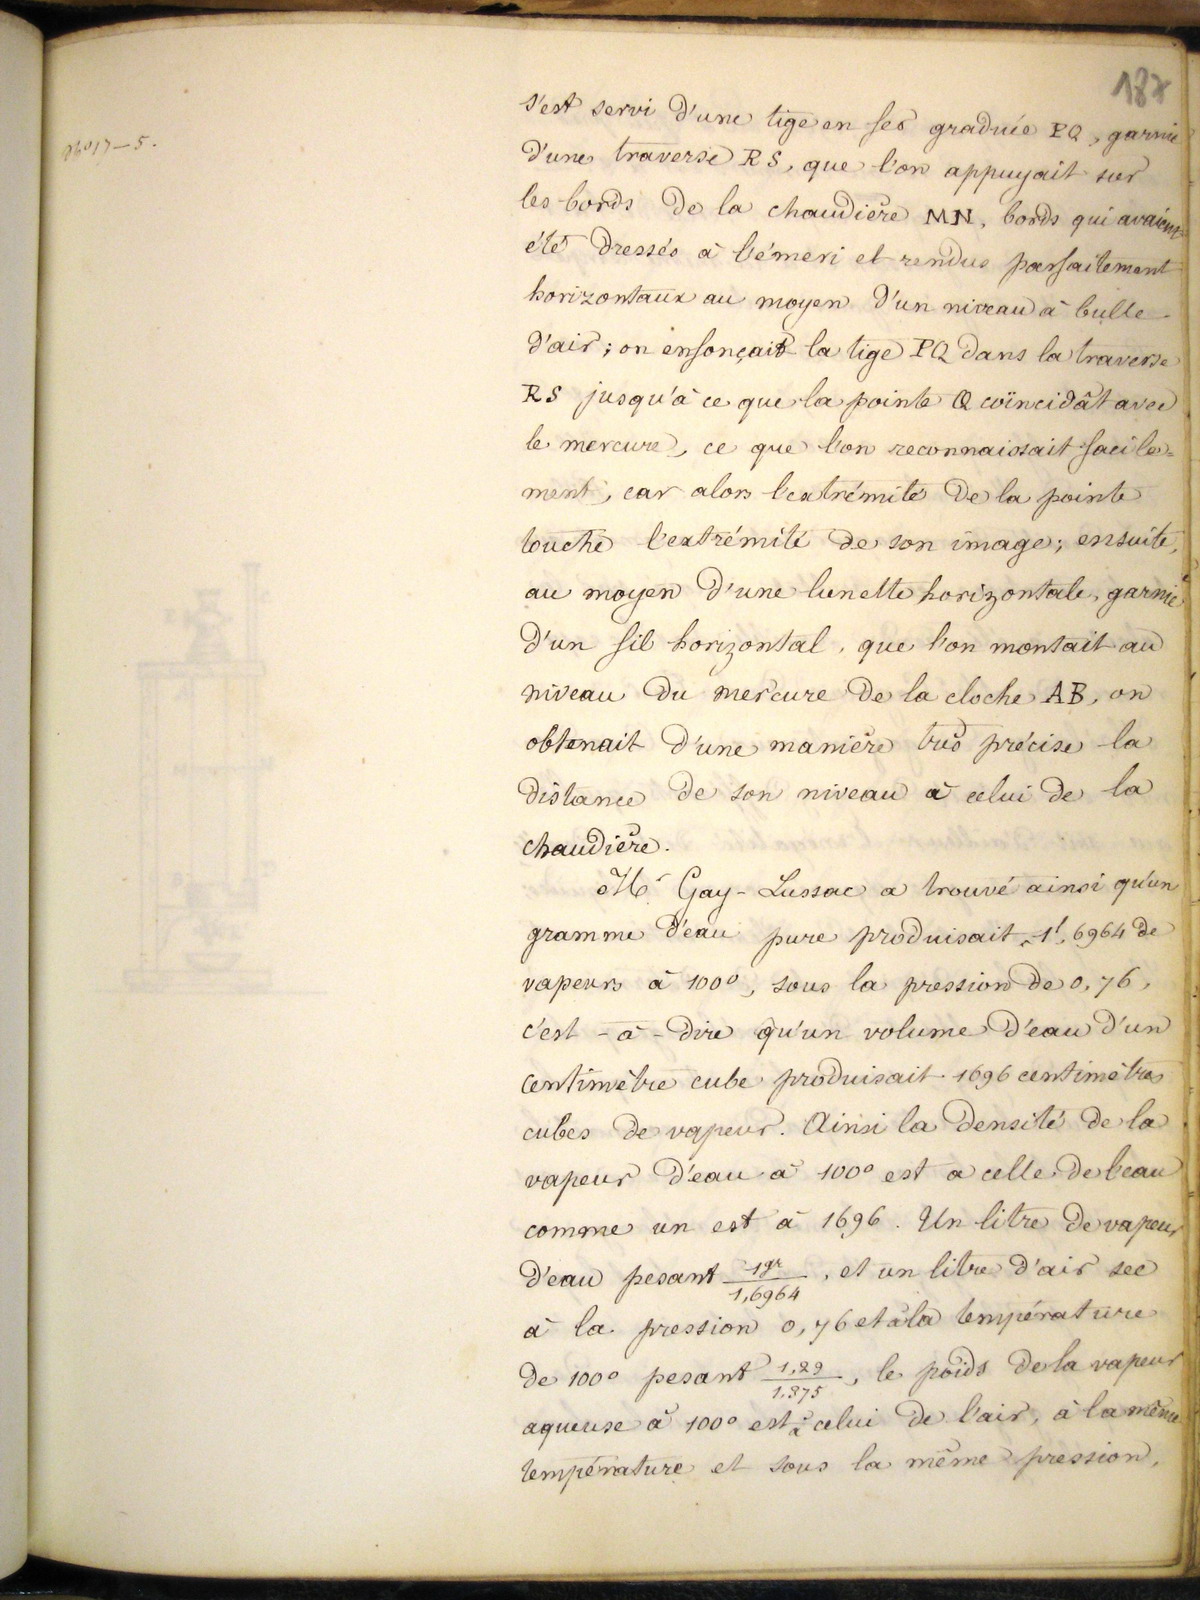 187
No 17 - 5.
s'est servi d'une tige en fer graduée PQ, garnie
d'une traverse RS, que l'on appuyait sur
les bords de la chaudière MN, bords qui avaient
été dressés à l'émeri et rendus parfaitement
horizontaux au moyen d'un niveau à bulle
d'air; on enfonçait la tige PQ dans la traverse
RS jusqu'à ce que la pointe Q coïncidât avec
le mercure, ce que l'on reconnaissait facile=
ment, car alors l'extrémité de la pointe
touche l'extrémité de son image; ensuite,
au moyen d'une lunette horizontale, garnie
d'un fil horizontal, que l'on montait au
niveau du mercure de la cloche AB, on
obtenait d'une manière très précise la
distance de son niveau à celui de la
chaudière.
Mr Gay-Lussac a trouvé ainsi qu'un
gramme d'eau pure produisait 1l,6964 de
vapeurs à 100°, sous la pression de 0,76,
c'est-à-dire qu'un volume d'eau d'un
centimètre cube produisait 1696 centimètres
cubes de vapeur. Ainsi la densité de la
vapeur d'eau à 100° est a celle de l'eau
comme un est à 1696. Un litre de vapeur
d'eau pesant 1gr/1,6964, et un litre d'air sec
à la pression 0,76 et à la température
de 100° pesant 1,29/1,375, le poids de la vapeur
aqueuse à 100° est à celui de l'air, à la même
température et sous la même pression,